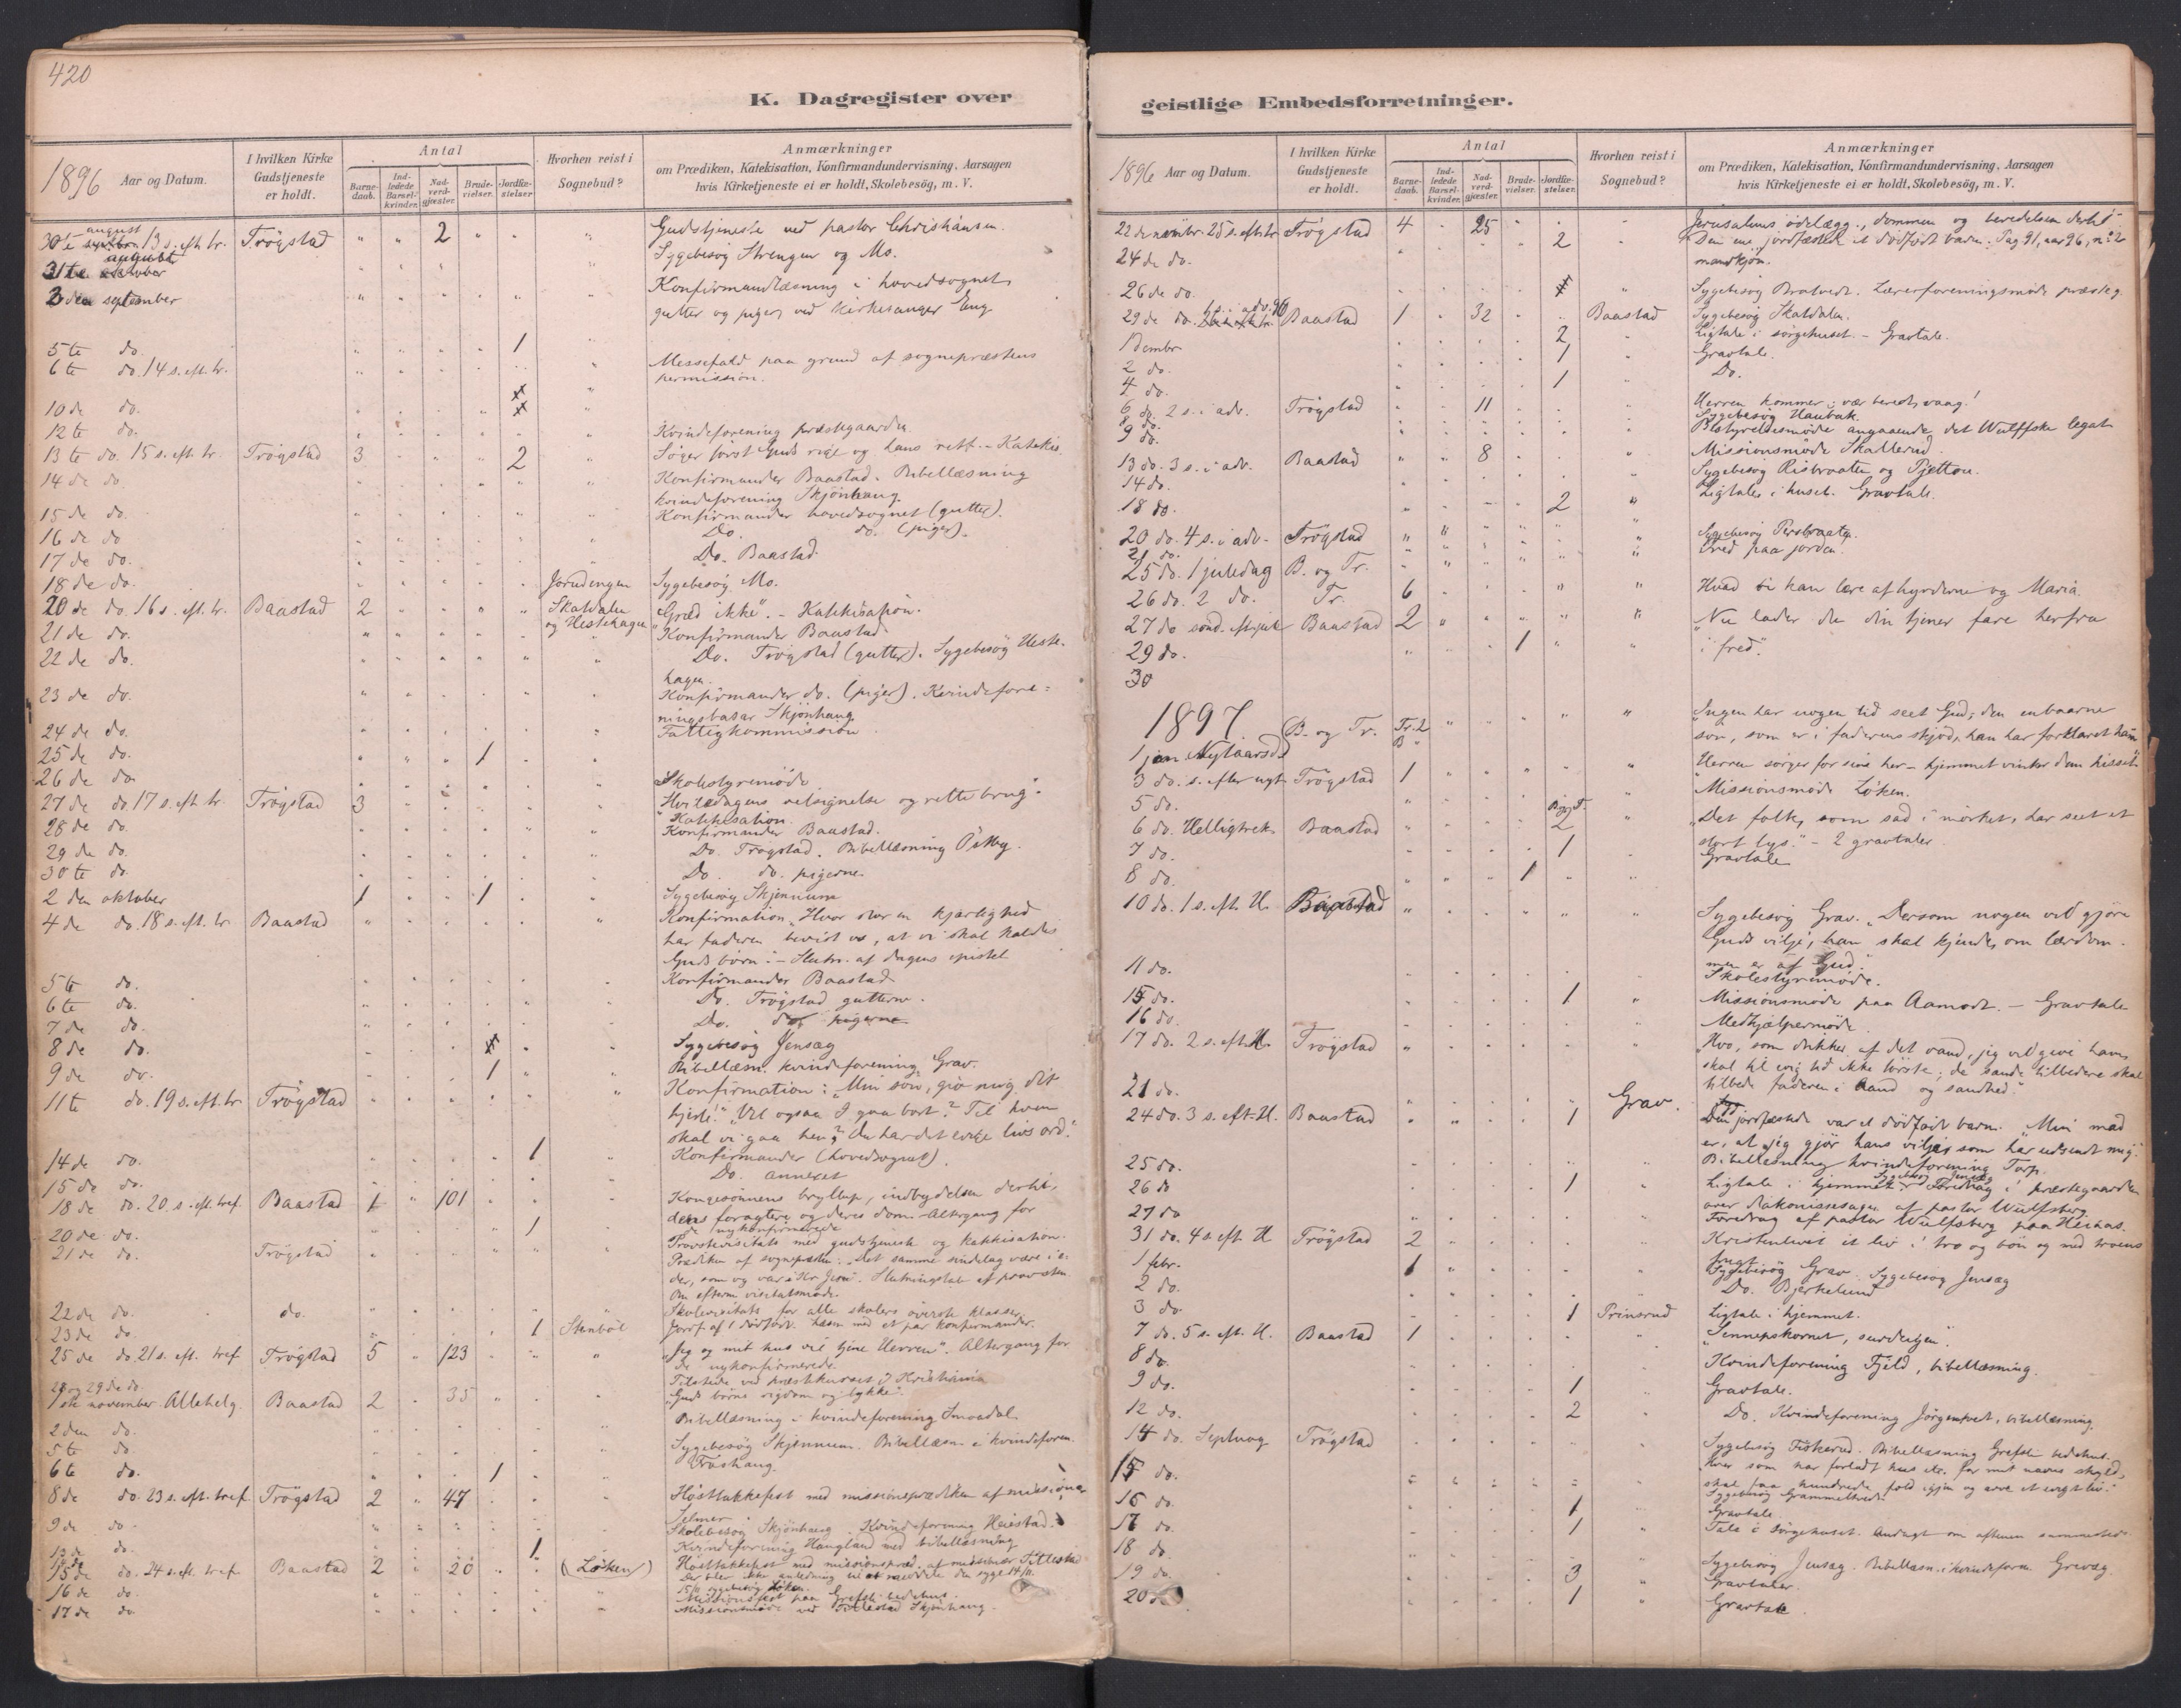 420
K. Dagregister over
1896 Aar og Datum.
I hvilken Kirke Gudstjeneste er holdt.
Antal
Barne-daab.
Ind-ledede Barsel-kvinder.
Nad-verd-gjæster.
Brude-vielser.
Jordfæ-stelser.
Hvorhen reist i Sognebud?
Anmærkninger
om Prædiken, Katekisation, Konfirmandundervisning, Aarsagen
hvis Kirketjeneste ei er holdt, Skolebesög, m. V.
august
30te 13 s. eft. tr. Trögstad " " 2 " " " Gudstjeneste ved pastor Christiansen.
august
31te Sygebesög Strengen og Mo.
2den september Konfirmandlæsning i hovedsognet,
gutter og piger, ved kirkesanger Eng
5te do. 1
6te do. 14 s. eft. tr. Messefald paa grund af sognepræstens
permission.
10de do.
12te do. Kvindeforening præstegaarden.
13te do. 15 s. eft. tr. Trögstad 3 2 Söger först Guds rige og hans retf. - Katekis.
14de do. Konfirmander Baastad. Bibellæsning
kvindeforening Skjönhaug.
15de do. Konfirmander hovedsognet (gutter).
16de do Do. do. (piger).
17de do. Do. Baastad.
18de do. Jorudengen Sygebesög Mo.
20de do. 16 s. eft. tr. Baastad 2 Skatdalen og Hestehagen "Græd ikke". - Katekisation.
21de do. Konfirmander Baastad
22de do. Do. Trögstad (gutter). Sygebesög Heste-
hagen.
23de do. Konfirmander do. (piger). Kvindefore=
ningsbasar Skjönhaug
24de do. Fattigkommission
25de do. 1
26de do Skolestyremöde
27de do. 17 s. eft. tr. Trögstad 3 Hviledagens velsignelse og rette brug.
Katekisation.
28de do. Konfirmander Baastad.
29de do. Do. Trögstad. Bibellæsning
30te do. Do. do. pigerne.
2den oktober 1 1 Sygebesög Skjennum
4de do. 18 s. eft. tr Baastad Konfirmation. "Hvor stor en kjærlighed
har faderen bevist os, at vi skal kaldes
Guds börn". - Slutn. af dagens epistel
5te do. Konfirmander Baastad
6te do. Do. Trögstad gutterne.
7de do. Do. do. pigerne
8de do. Sygebesög Jensæg
9de do. 1 Bibellæsn. kvindeforening Grav.
11te do. 19 s. eft. tr Trögstad Konfirmation: "Min sön, giv mig dit
hjerte!" "Vil ogsaa I gaa bort? Til hvem
skal vi gaa hen? Du har det evige livs ord."
14de do. 1 Konfirmander (hovedsognet).
15de do. Do. annexet
18de do. 20 s. eft. tref. Baastad 1 101 Kongesönnens bryllup, indbydelsen dertil,
dens foragtere og deres dom. - Altergang for
de nykonfirmerede
20de do. 1
21de do. Trögstad Provstevisitats med gudstjeneste og katekisation.
Prædiken af sognepresten: "Det samme sindelag være i e-
der, som og var i Kr. Jesu". Slutningstale af provsten.
Om efterm. visitatsmöde.
22de do. do. Skolevisitats for alle skolers överste klasser.
23de do 1 Stenböl Jordf. af 1 dödfödt. Læsn. med et par konfirmander.
25de do. 21 s. eft. tref Trögstad 5 123 "Jeg og mit hus vil tjene Herren". Altergang for
de nykonfirmerede.
28 og 29de do. Tilstede ved præstekurset i Kristiania
1ste november. Allehelg. Baastad 2 35 "Guds börns rigdom og lykke".
2den do. Bibellæsning i kvindeforening Smaadal
5te do. Sygebesög Skjennum. Bibellæsn. i kvindeforen.
Frøshaug.
6te do. 1
8de do. 23 s. eft. tref. Trögstad 2 47 Hösttakkefest med missionsprædiken af missionær
Selmer
9de do. Skolebesög Skjönhaug. Kvindeforening Heiestad.
do. 1 Kvindeforening Haugland med bibellæsning
15de do. 24 s. eft. tref Baastad 2 20 (Löken) Hösttakkefest med missionspræd. af missionær Tillestad
Der blev ikke anledning til at meddele den syge 14/11.
15/11 sygebesög Löken.
16de do. Missionsfest paa Grefsli bedehus.
17de do Missionsmöde ved Tillestad Skjönhaug.
geistlige Embedsforretninger.
1896 Aar og Datum.
I hvilken Kirke Gudstjeneste er holdt.
Antal
Barne-daab.
Ind-ledede Barsel-kvinder.
Nad-verd-gjæster.
Brude-vielser.
Jordfæ-stelser.
Hvorhen reist i Sognebud?
Anmærkninger
om Prædiken, Katekisation, Konfirmandundervisning, Aarsagen
hvis Kirketjeneste ei er holdt, Skolebesög, m. V.
22de novbr. 25 s. eft. tr Trögstad 4 25 Jerusalems ödelægg., dommen og beredelsen dertil
24de do. 2 Den ene jordfæstede et dödfödt barn. Pag 91, aar 96, no 2
mandkjön.
26de do Sygebesög Bratvedt. Lærerforeningsmöde præsteg.
29de do. 1 s. i adv. 96 Baastad 1 32 Baastad Sygebesög Skatdalen.
1 dembr 2 Ligtale i sörgehuset. - Gravtale.
2 do. 1 Gravtale.
4 do. 1 Do.
6 do. 2 s. i adv. Trögstad 11 Herren kommer; vær beredt, vaag!
8 do. Sygebesög Haubak.
9 do. Bestyrelsesmöde angaaende det Wulffske legat
13 do. 3 s. i adv. Baastad 8 Missionsmöde Skallerud.
14 do. Sygebesög Risbraaten og Tjetton.
18 do. 2 Ligtaler i huset. Gravtale.
20 do. 4 s. i adv. Trögstad Sygebesög Persbraaten.
21 do.
25 do. 1 juledag B. og Tr. Fred paa jorden!
26 do. 2 do. Tr. 6 Hvad vi kan lære af hyrderne og Maria.
27 do sönd. eft. jul Baastad 2 "Nu lader du din tjener fare herfra
29 do. 1 i fred".
30
1897
1 jan Nytaarsd B. og Tr. Tr. 2 B " "Ingen har nogen tid seet Gud; den enbaarne
sön, som er i faderens skjöd, han har forklaret ham"
3 do. s. efter nyt Trögstad 1 Herren sörger for sine her - hjemmet vinker dem hisset
5 do. Missionsmöde Löken.
6 do. Helligtrek. Baastad B og T. 2 "Det folk, som sad i mörket, har seet et
stort lys." - 2 gravtaler
7 do. 1 Gravtale
8 do. 1
10 do. 1 s. eft. H. Baastad Sygebesög Grav. "Dersom nogen vil gjöre
Guds vilje, han skal kjende, om lærdom-
men er af Gud".
11 do. Skolestyremöde.
15 do. 1 Missionsmöde paa Aamodt. - Gravtale
16 do. Medhjælpermöde.
17 do. 2 s. eft. H. Trögstad "Hvo, som drikker af det vand, jeg vil give ham,
skal til evig tid ikke törste; de sande tilbedere skal
tilbede faderen i aand og sandhed."
21 do. Grav.
24 do. 3 s. eft. H. Baastad 1 Den jordfæstede var et dödfödt barn. "Min mad
er, at jeg gjör hans vilje, som har udsendt mig."
25 do. Bibellæsning kvindeforening Torp.
26 do 1 Ligtale i hjemmet. Foredrag i præstegaarden
over diakonissesagen af pastor Wulfsberg.
27 do Foredrag af pastor Wulfsberg paa Heiaas.
31 do. 4 s. eft. H Trögstad 2 Kristenlivet et liv i tro og bön og med troens
frugt.
1 febr. 1 Sygebesög Grav. Sygebesög Jensæg
2 do. Do. Bjerkelund
3 do. 1 Prinsrud Ligtale i hjemmet.
7 do. 5 s. eft. H. Baastad 1 "Sennepskornet, surdeigen".
8 do. Kvindeforening Fjeld, bibellæsning.
9 do. 1 Gravtale.
12 do. 2 Do. Kvindeforening Jörgentvedt, bibellæsning.
14 do. Septuag Trögstad Sygebesög Fiskerud. Bibellæsning Grefsli bedehus.
"Hver som har forladt hus etc. for mit navns skyld,
skal faa hundrede fold igjen og arve et evigt liv."
15 do. Sygebesög Grammeltvedt
16 do. 1 Gravtale
17 do. 1 Tale i Sörgehuset. Andagt om aftenen sammesteds.
18 do
19 do. 3 Sygebesög Jensæg. Bibellæsn. i kvindeforen. Grevæg.
Gravtaler.
20 do. 1 Gravtale